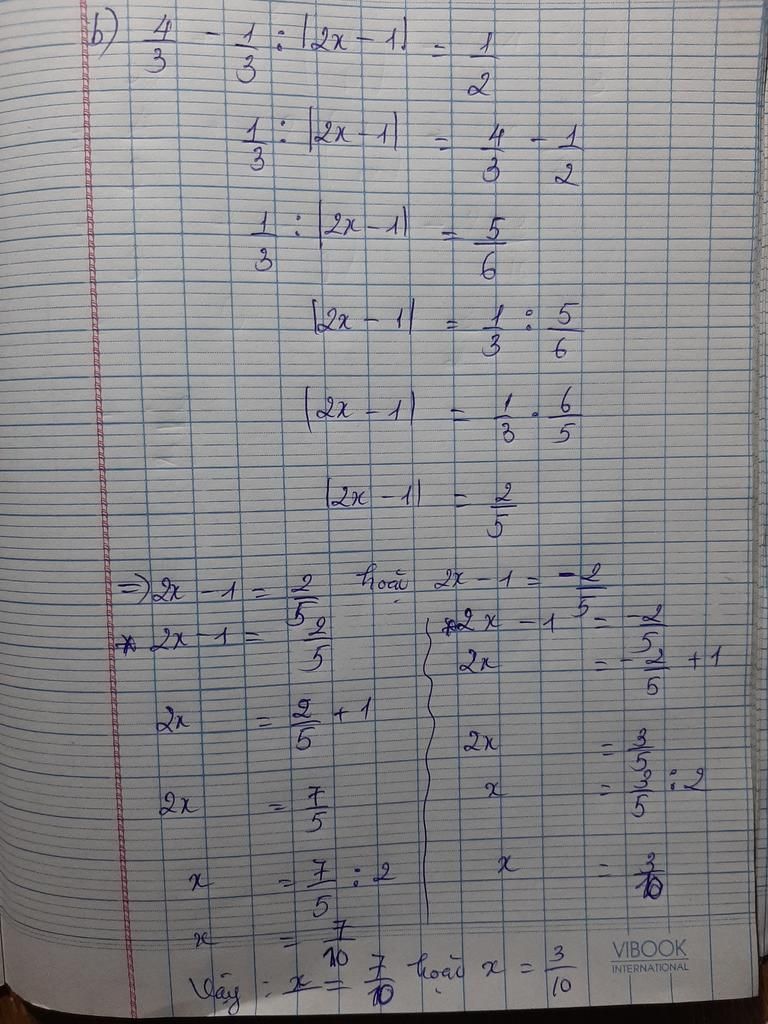 b) 4/3 - 1/3 : |2x - 1| = 1/2
1/3 : |2x - 1| = 4/3 - 1/2
1/3 : |2x - 1| = 5/6
|2x - 1| = 1/3 : 5/6
|2x - 1| = 1/3 . 6/5
|2x - 1| = 2/5
=> 2x - 1 = 2/5 hoặc 2x - 1 = -2/5
* 2x - 1 = 2/5
2x = 2/5 + 1
2x = 7/5
x = 7/5 : 2
x = 7/10
* 2x - 1 = -2/5
2x = -2/5 + 1
2x = 3/5
x = 3/5 : 2
x = 3/10
Vậy : x = 7/10 hoặc x = 3/10
VIBOOK
INTERNATIONAL